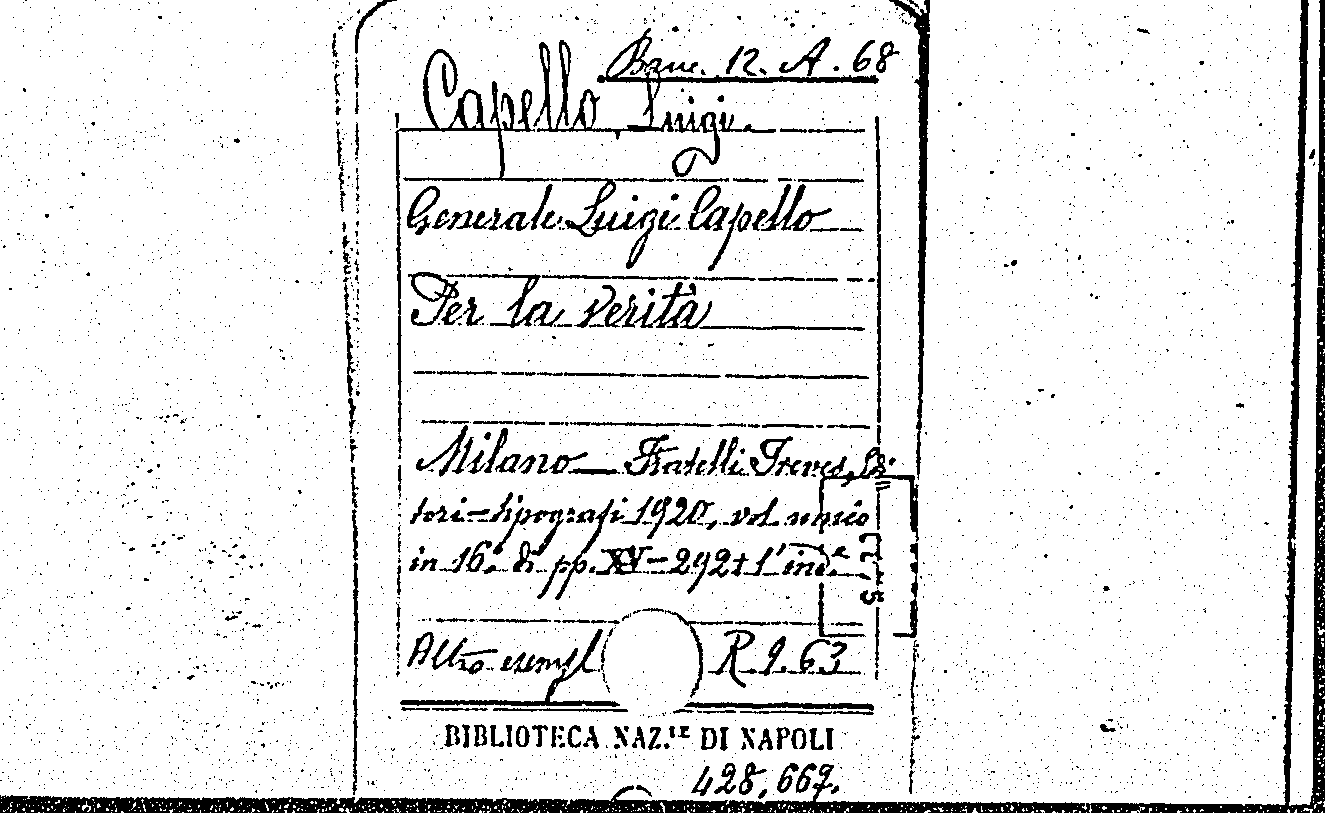 Banc. 12. A. 68
Capello, Luigi.
Generale Luigi Capello
Per la verità
Milano — Fratelli Treves, Edi-
tori-tipografi 1920, vol. unico
in 16.° di pp. XV-292+l'ind.e
Altro esempl R 9. 63
BIBLIOTECA NAZ.LE DI NAPOLI
428,667.